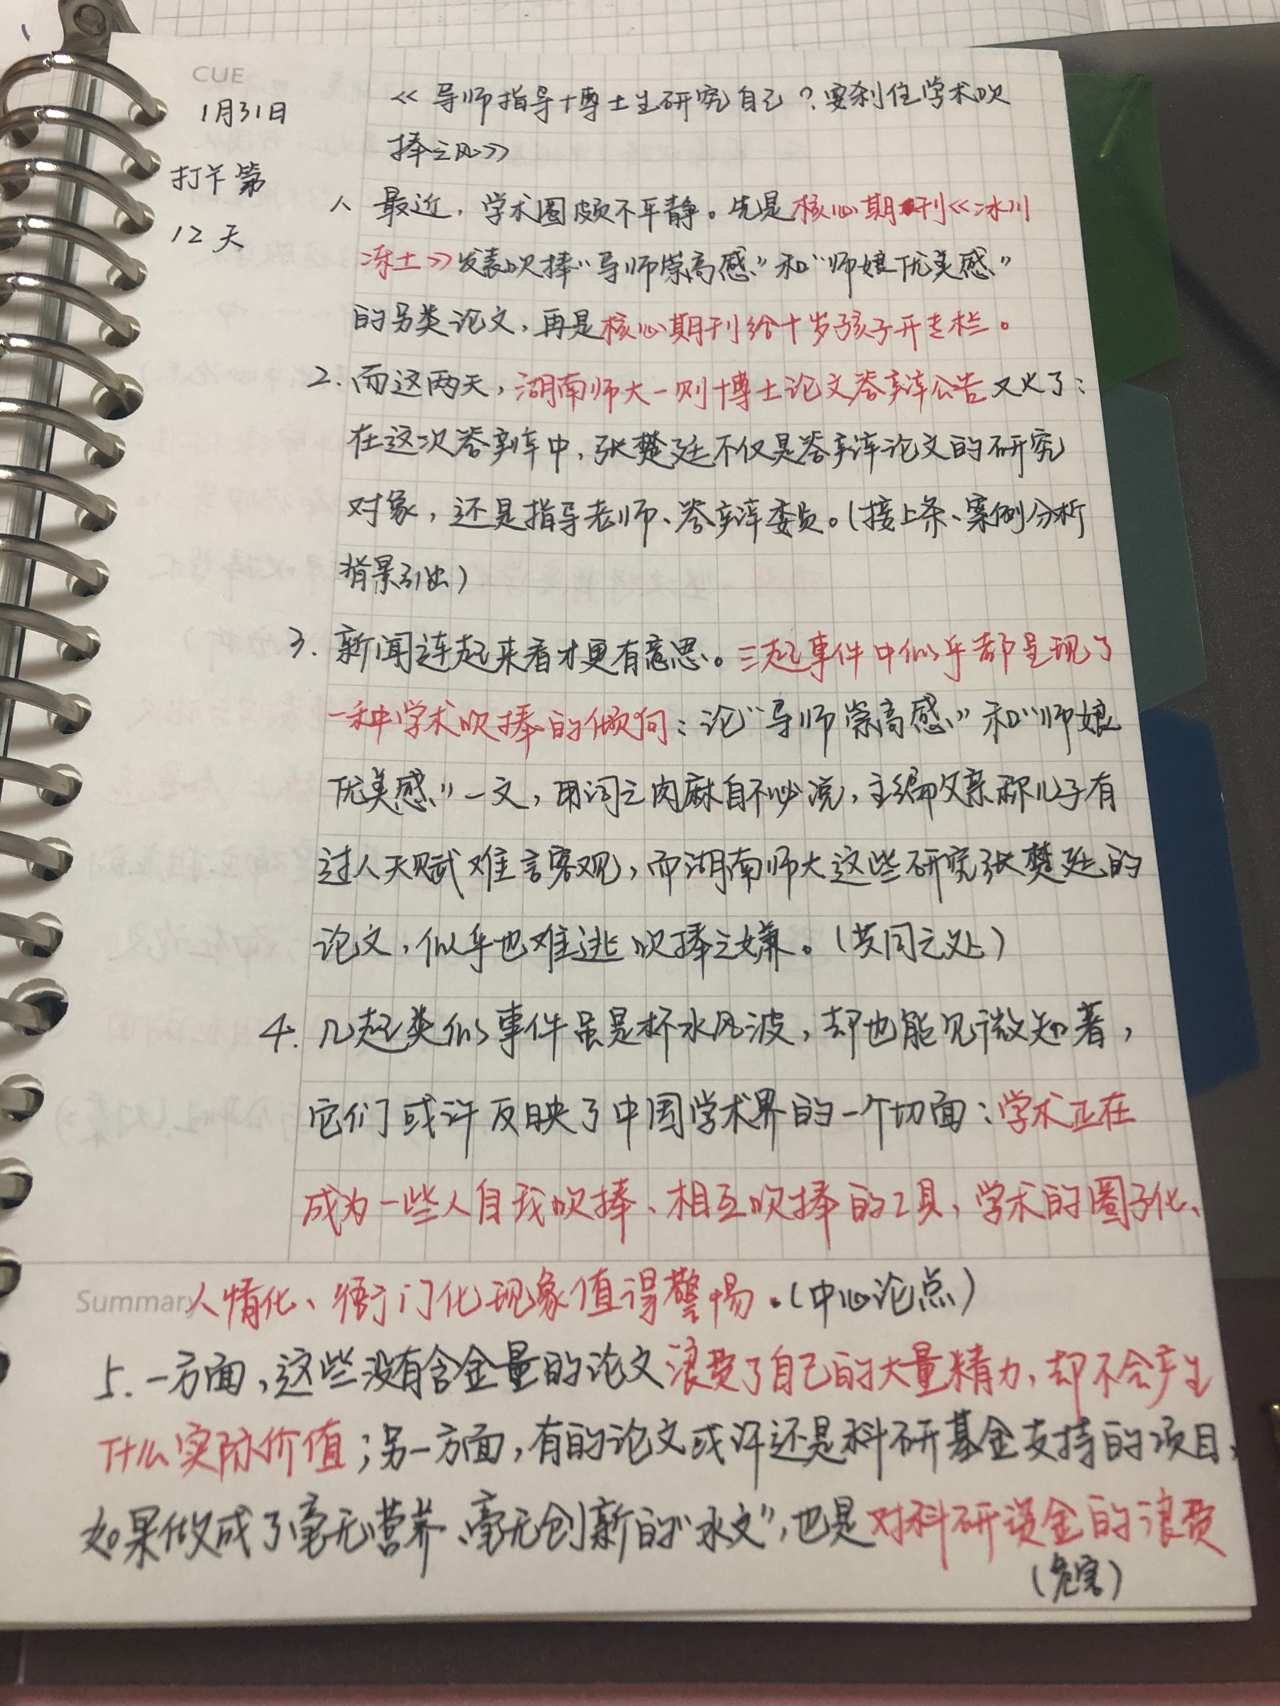 CUE
1月31日
打卡第
12天
《导师指导博士生研究自己?要刹住学术吹
捧之风》
1、最近,学术圈颇不平静。先是核心期刊《冰川
冻土》发表吹捧“导师崇高感”和“师娘优美感”
的另类论文,再是核心期刊给十岁孩子开专栏。
2.而这两天,湖南师大一则博士论文答辩公告又火了:
在这次答辩中,张楚廷不仅是答辩论文的研究
对象,还是指导老师、答辩委员。(接上条、案例分析
背景引出)
3.新闻连起来看才更有意思。三起事件中似乎都呈现了
一种学术吹捧的倾向:论“导师崇高感”和“师娘
优美感”一文,用词之肉麻自不必说,主编父亲称儿子有
过人天赋难言客观,而湖南师大这些研究张楚廷的
论文,似乎也难逃吹捧之嫌。(共同之处)
4.几起类似事件虽是杯水风波,却也能见微知著,
它们或许反映了中国学术界的一个切面:学术正在
成为一些人自我吹捧、相互吹捧的工具,学术的圈子化、
Summary
人情化、衙门化现象值得警惕。(中心论点)
5.一方面,这些没有含金量的论文浪费了自己的大量精力,却不会产生
什么实际价值;另一方面,有的论文或许还是科研基金支持的项目,
如果做成了毫无营养、毫无创新的“水文”,也是对科研资金的浪费
(危害)